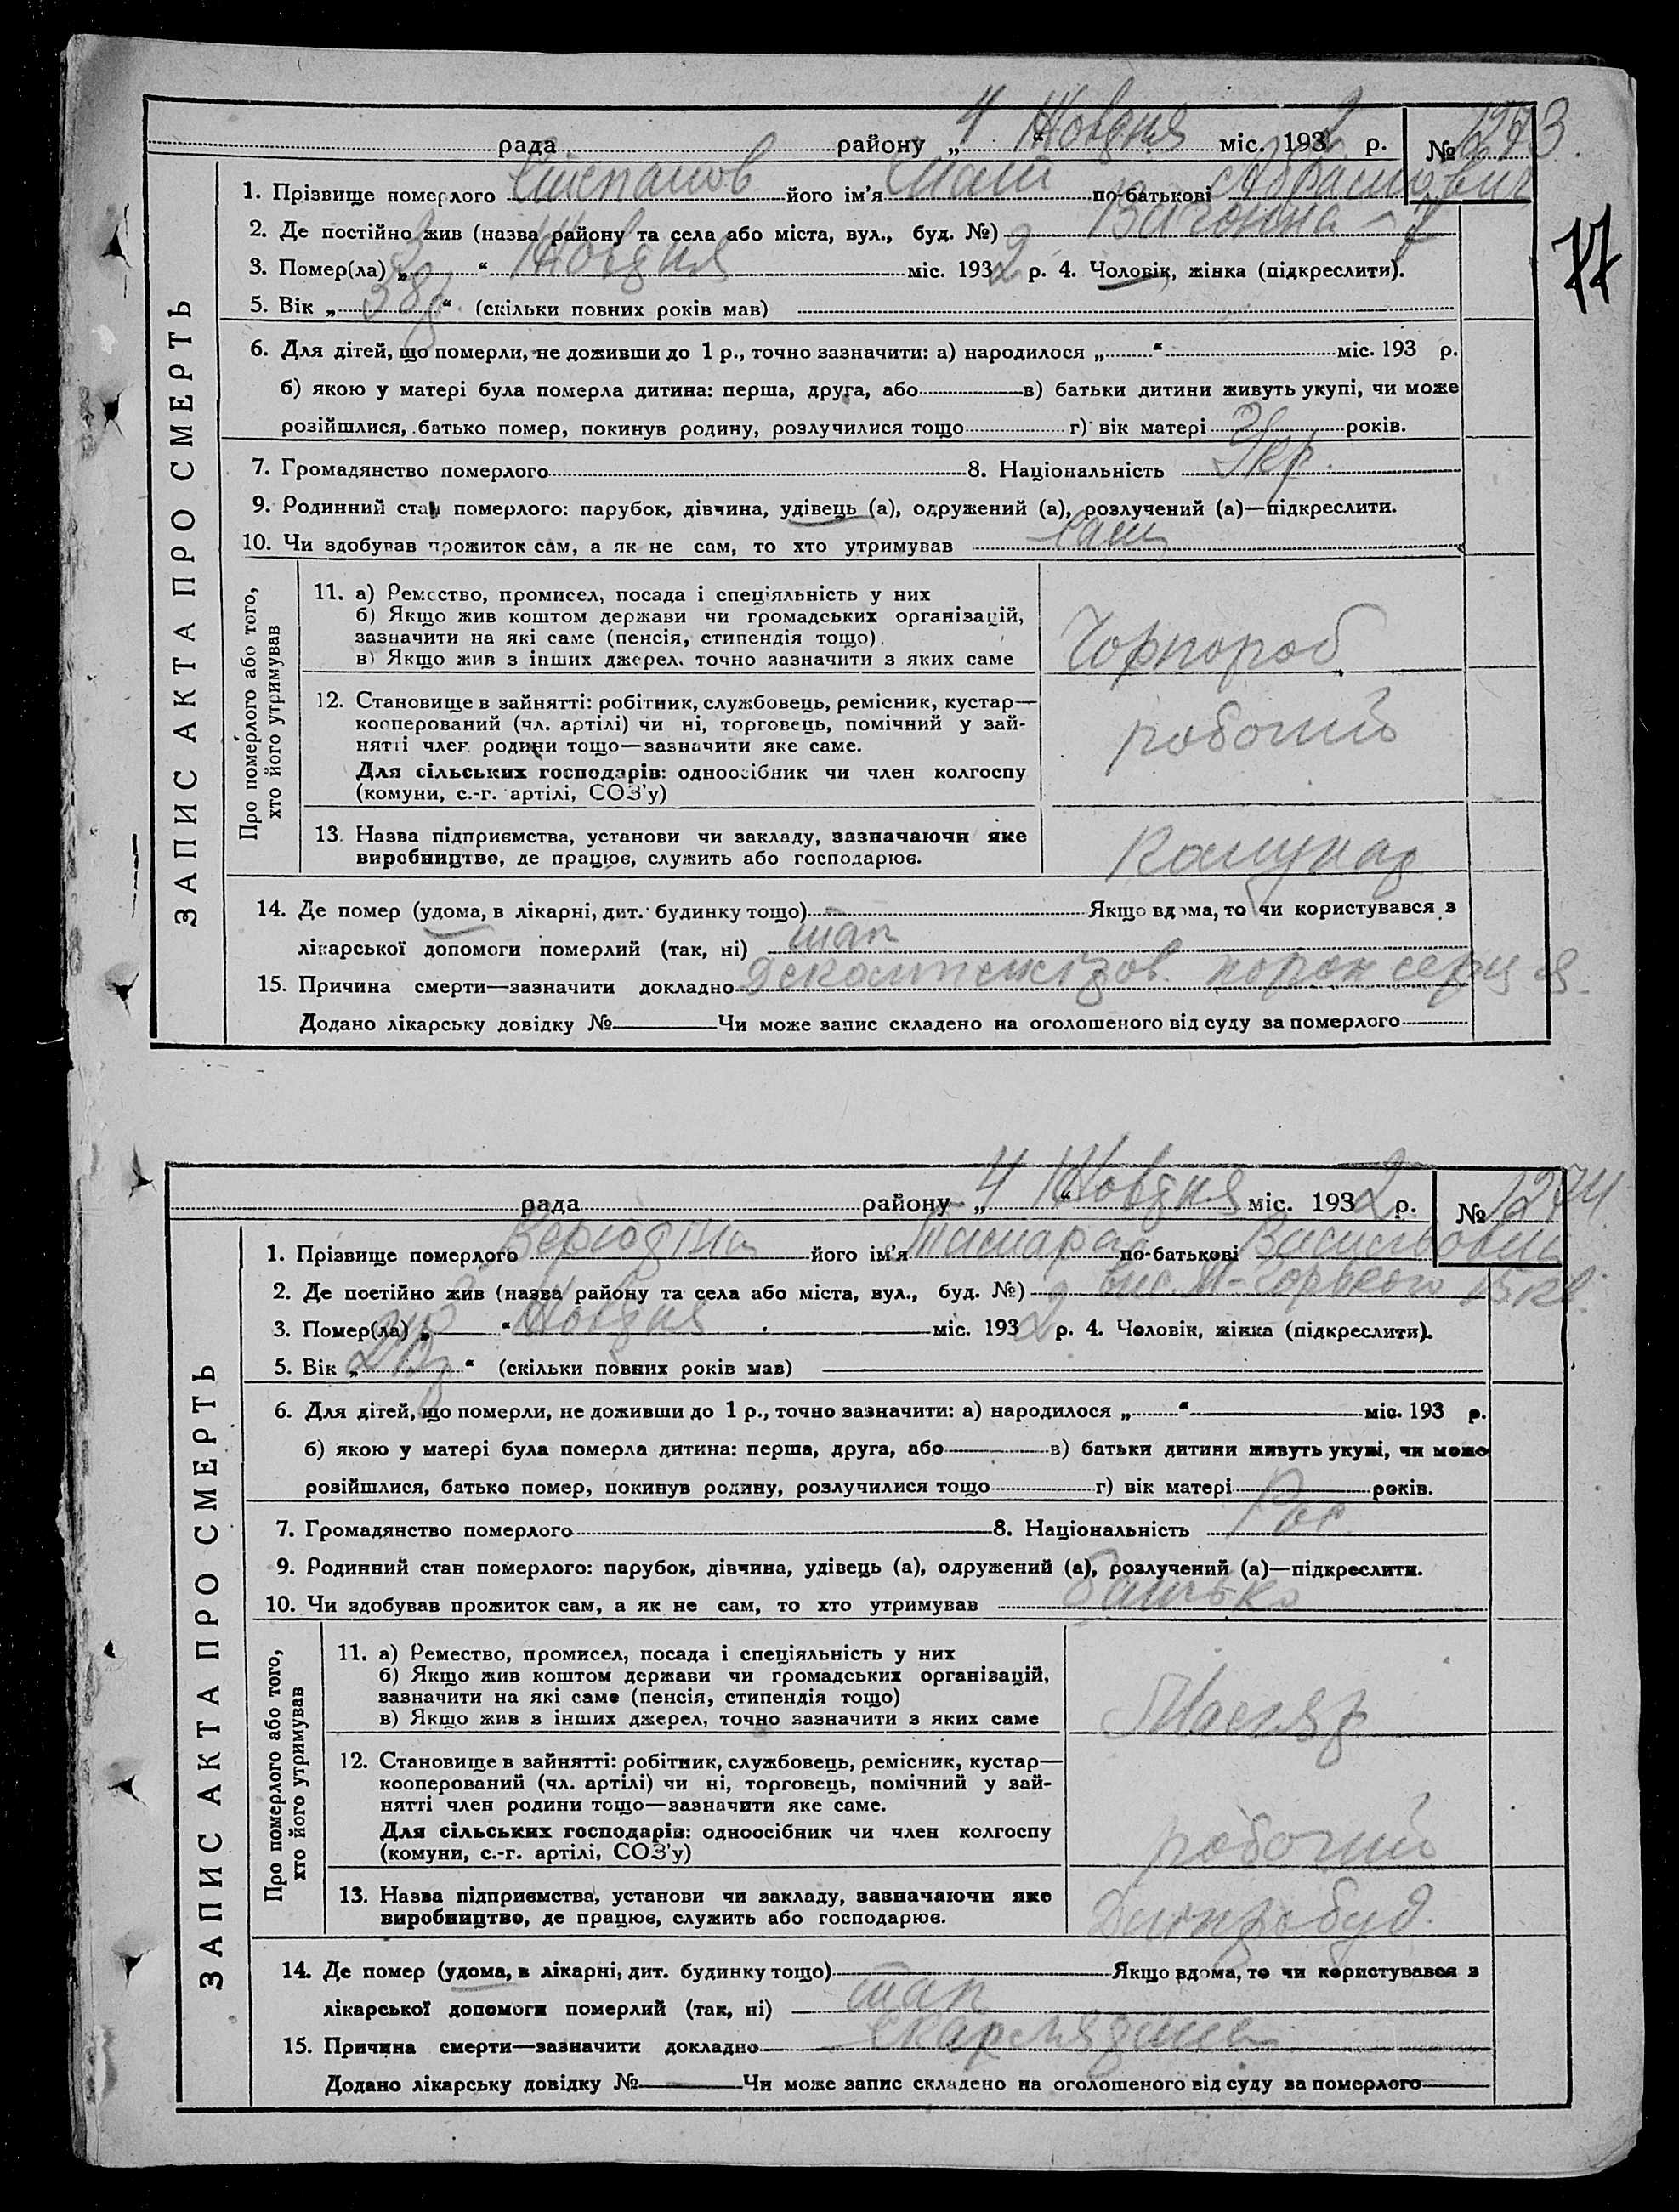 рада району „ 4 “ Жовтня міс. 1932 р. № 1273
77
1. Прізвище померлого Степанов його ім'я по-батькові Абрамович
2. Де постійно жив (назва району та села або міста, вул., буд. №) Вагонна - 7
3. Помер(ла) „ 3 “ Жовтня міс. 1932 р. 4. Чоловік, жінка (підкреслити).
5. Вік „ 38 р “ (скільки повних років мав)
6. Для дітей, що померли, не доживши до 1 р., точно зазначити: а) народилося „ “ міс. 193 р.
б) якою у матері була померла дитина: перша, друга, або в) батьки дитини живуть укупі, чи може
розійшлися, батько помер, покинув родину, розлучилися тощо г) вік матері років.
7. Громадянство померлого 8. Національність Укр.
9. Родинний стан померлого: парубок, дівчина, удівець (а), одружений (а), розлучений (а)—підкреслити.
10. Чи здобував прожиток сам, а як не сам, то хто утримував сам
ЗАПИС АКТА ПРО СМЕРТЬ
Про померлого або того, хто його утримував
11. а) Ремество, промисел, посада і спеціяльність у них
б) Якщо жив коштом держави чи громадських організацій,
зазначити на які саме (пенсія, стипендія тощо).
в) Якщо жив з інших джерел, точно зазначити з яких саме
Чорнороб
12. Становище в зайнятті: робітник, службовець, ремісник, кустар—
кооперований (чл. артілі) чи ні, торговець, помічний у зай-
нятті член родини тощо—зазначити яке саме.
Для сільських господарів: одноосібник чи член колгоспу
(комуни, с.-г. артілі, СОЗ'у)
робочий
13. Назва підприємства, установи чи закладу, зазначаючи яке
виробництво, де працює, служить або господарює.
14. Де помер (удома, в лікарні, дит. будинку тощо) Якщо вдома, то чи користувався з
лікарської допомоги померлий (так, ні) так
15. Причина смерти—зазначити докладно порок серця
Додано лікарську довідку № Чи може запис складено на оголошеного від суду за померлого
рада району „ 4 “ Жовтня міс. 1932 р. № 1274
1. Прізвище померлого його ім'я Тамара по-батькові
2. Де постійно жив (назва району та села або міста, вул., буд. №) вис. М-Горького 15 кв.
3. Помер(ла) „ “ Жовтня міс. 1932 р. 4. Чоловік, жінка (підкреслити).
5. Вік „ “ (скільки повних років мав)
6. Для дітей, що померли, не доживши до 1 р., точно зазначити: а) народилося „ “ міс. 193 р.
б) якою у матері була померла дитина: перша, друга, або в) батьки дитини живуть укупі, чи може
розійшлися, батько помер, покинув родину, розлучилися тощо г) вік матері років.
7. Громадянство померлого 8. Національність Рос
9. Родинний стан померлого: парубок, дівчина, удівець (а), одружений (а), розлучений (а)—підкреслити.
10. Чи здобував прожиток сам, а як не сам, то хто утримував батько
ЗАПИС АКТА ПРО СМЕРТЬ
Про померлого або того, хто його утримував
11. а) Ремество, промисел, посада і спеціяльність у них
б) Якщо жив коштом держави чи громадських організацій,
зазначити на які саме (пенсія, стипендія тощо)
в) Якщо жив з інших джерел, точно зазначити з яких саме
Маляр
12. Становище в зайнятті: робітник, службовець, ремісник, кустар—
кооперований (чл. артілі) чи ні, торговець, помічний у зай-
нятті член родини тощо—зазначити яке саме.
Для сільських господарів: одноосібник чи член колгоспу
(комуни, с.-г. артілі, СОЗ'у)
робочий
13. Назва підприємства, установи чи закладу, зазначаючи яке
виробництво, де працює, служить або господарює.
Дніпробуд.
14. Де помер (удома, в лікарні, дит. будинку тощо) Якщо вдома, то чи користувався з
лікарської допомоги померлий (так, ні) так
15. Причина смерти—зазначити докладно скарлядина
Додано лікарську довідку № Чи може запис складено на оголошеного від суду за померлого